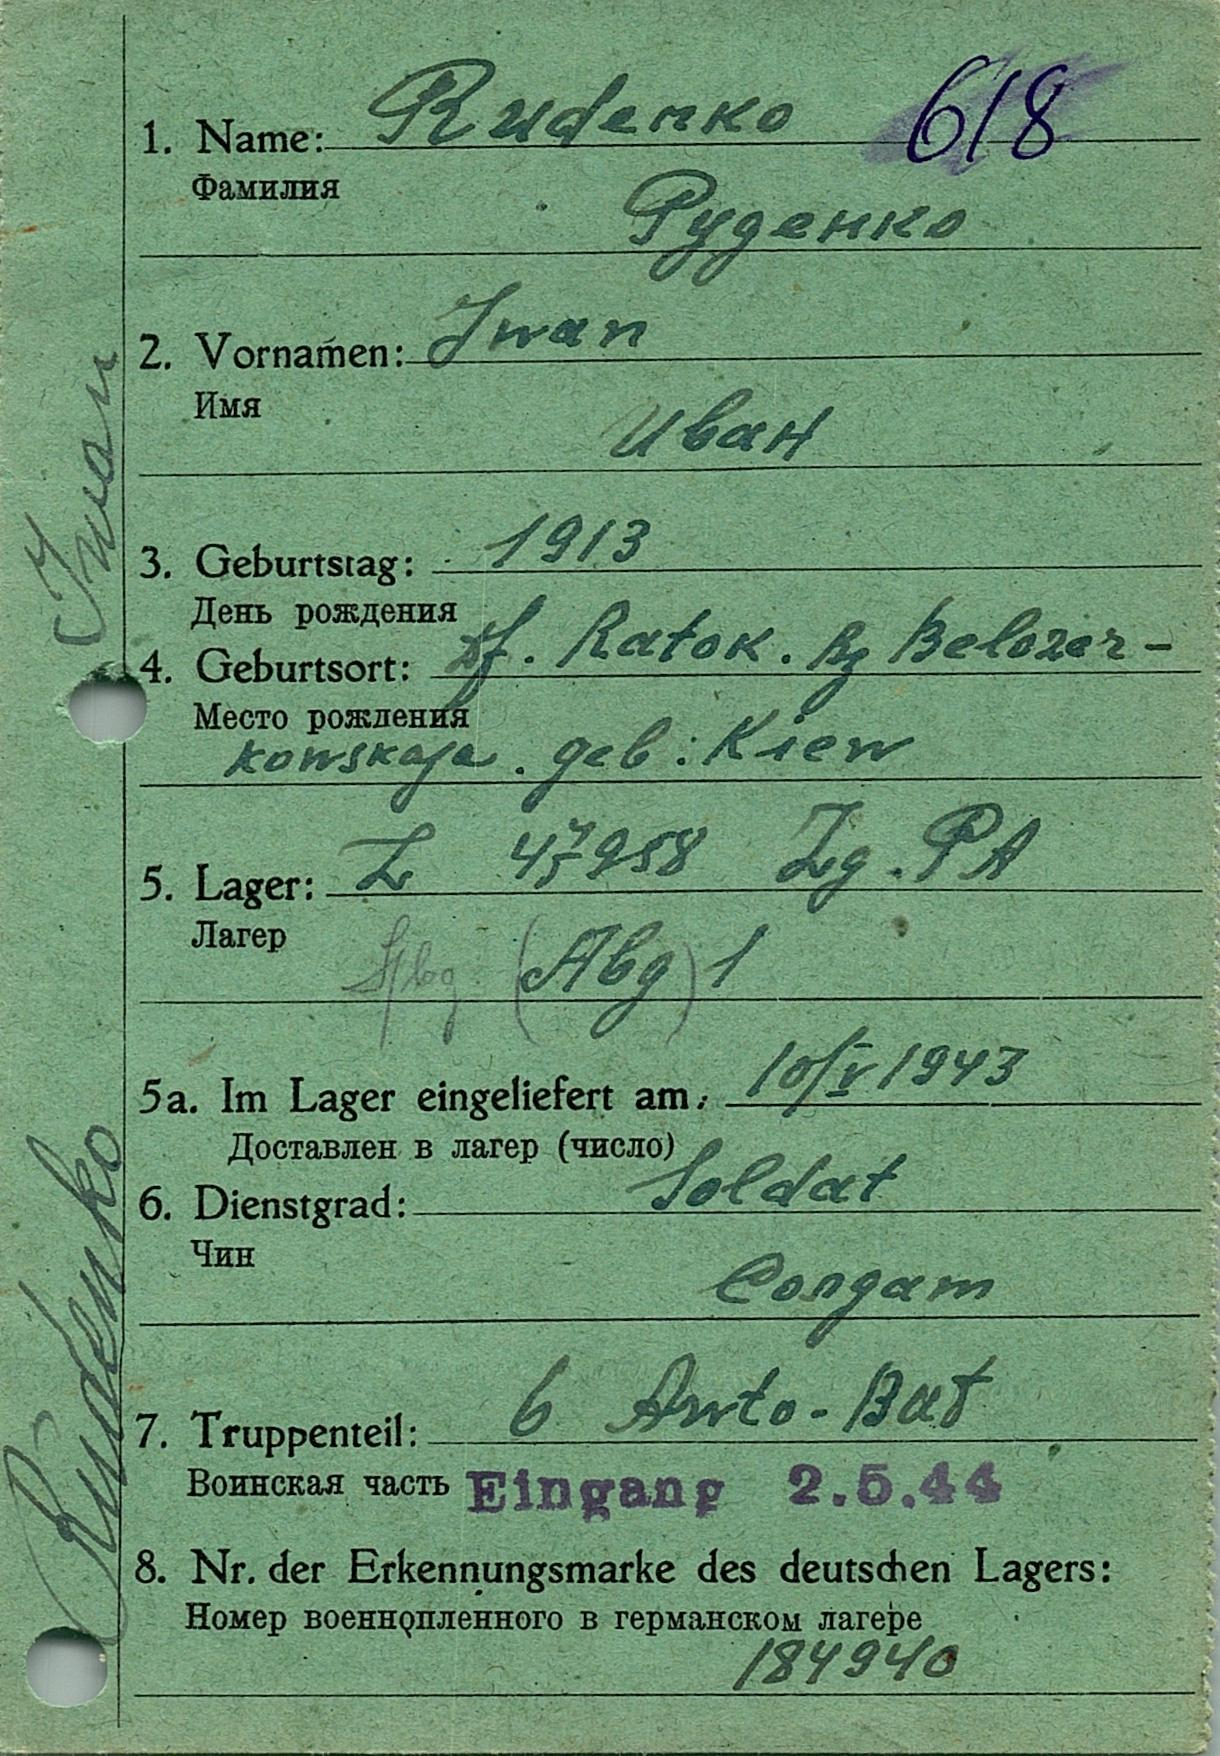 1. Name: Rudenko 618
Фамилия
Руденко
2. Vornamen: Iwan
Имя
Иван
3. Geburtstag: 1913
День рождения
4. Geburtsort: Df. Ratok. Rg Belozer-
Место рождения
kowskaja. geb: Kiew
5. Lager: Z 958 Zg. PA
Лагер
(Abg) 1
5a. Im Lager eingeliefert am: 10/V 1943
Доставлен в лагер (число)
6. Dienstgrad: Soldat
Чин
Солдат
7. Truppenteil: 6 Awto-Bat
Воинская часть Eingang 2.5.44
8. Nr. der Erkennungsmarke des deutschen Lagers:
Номер военнопленного в германском лагере
184940
Rudenko Iwan